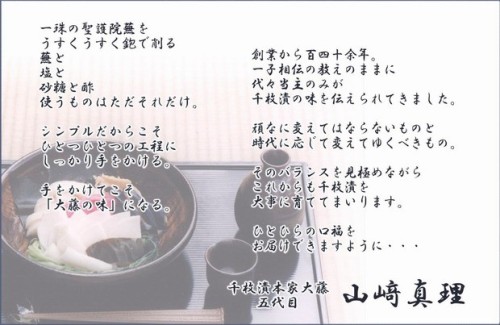 一珠の聖護院蕪を
うすくうすく鉋で削る
蕪と
塩と
砂糖と酢
使うものはただそれだけ。
シンプルだからこそ
ひとつひとつの工程に
しっかり手をかける。
手をかけてこそ
「大藤の味」になる。
創業から百四十余年。
一子相伝の教えのままに
代々当主のみが
千枚漬の味を伝えられてきました。
頑なに変えてはならないものと
時代に応じて変えてゆくべきもの。
そのバランスを見極めながら
これからも千枚漬を
大事に育ててまいります。
ひとひらの口福を
お届けできますように・・・
千枚漬本家大藤
五代目 山﨑真理